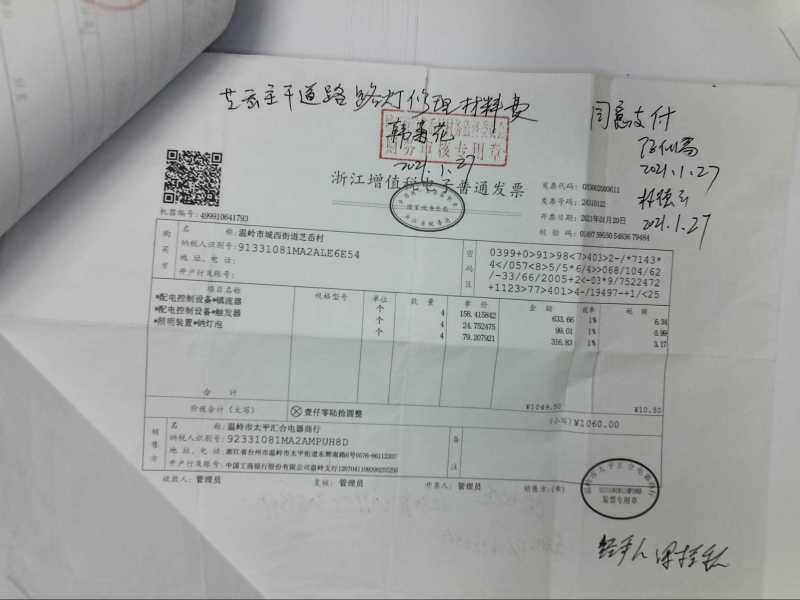 主干道路路灯修理材料费
同意支付
韩菊花
2021.1.27
2021.1.27
2021.1.27
财务审核专用章
浙江增值税电子普通发票
发票代码:
发票号码:
开票日期:2021年01月20日
校验码:
机器编号:499910641793
购买方
名称:温岭市城西街道芝岙村
纳税人识别号:91331081MA2ALE6E54
地址、电话:
开户行及账号:
密码区
0399+0>91>98<7>403>2-/*7143*
4</057<8>5/5*6/4>>068/104/62
/-33/66/2005+2<-03*9/7522472
+1123>77>401>4-/19497-+1/<25
项目名称 规格型号 单位 数量 单价 金额 税率 税额
*配电控制设备*镇流器 个 4 158.415842 633.66 1% 6.34
*配电控制设备*触发器 个 4 24.752475 99.01 1% 0.99
*照明装置*钠灯泡 个 4 79.207921 316.83 1% 3.17
合计 ¥1049.50 ¥10.50
价税合计(大写) ⊗壹仟零陆拾圆整 (小写)¥1060.00
销售方
名称:温岭市太平汇合电器商行
纳税人识别号:92331081MA2AMPUH8D
地址、电话:浙江省台州市温岭市太平街道
开户行及账号:中国工商银行股份有限公司温岭支行
备注
收款人:管理员 复核:管理员 开票人:管理员 销售方:(章)
温岭市太平汇合电器商行
发票专用章
经手人